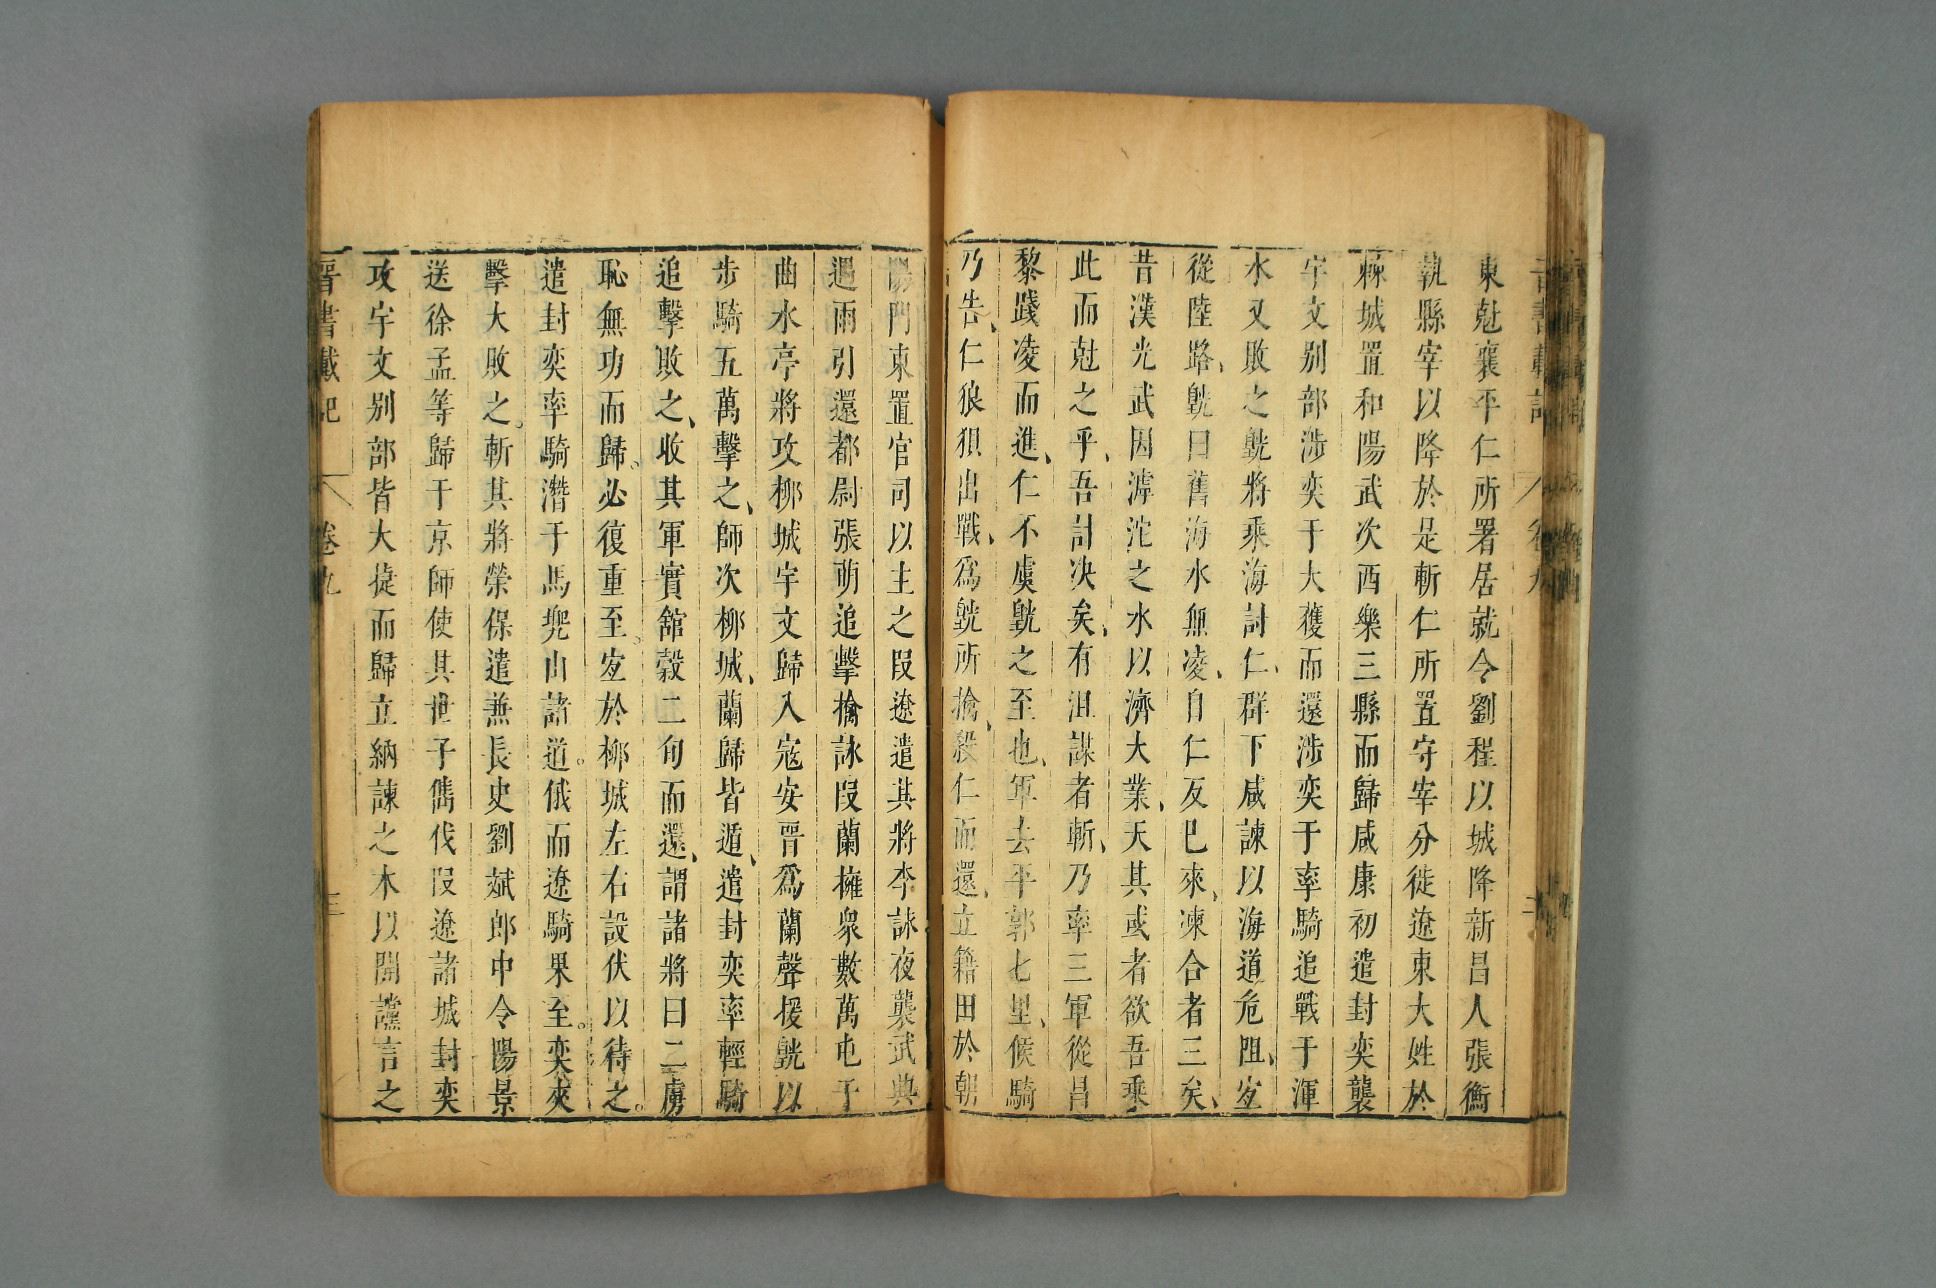 東尅襄平仁所署居就令劉程以城降新昌人張衡
執縣宰以降於是斬仁所置守宰分徙遼東大姓於
棘城置和陽武次西樂三縣而歸咸康初遣封奕襲
宇文别部涉奕于大獲而還涉奕于率騎追戰于渾
水又敗之皝將乘海討仁、群下咸諫以海道危阻、宜
從陸路、皝曰舊海水無凌、自仁反已來、凍合者三矣、
昔漢光武因滹沱之水以濟大業、天其或者欲吾乘
此而尅之乎、吾計决矣、有沮謀者斬、乃率三軍從昌
黎踐凌而進、仁不虞皝之至也、軍去平郭七里、候騎
乃告、仁狼狽出戰、爲皝所擒、殺仁而還、立籍田於朝
陽門東置官司以主之段遼遣其將李詠夜襲武興
遇雨引還都尉張萌追擊擒詠段蘭擁衆數萬屯于
曲水亭將攻柳城宇文歸入寇安晉爲蘭聲援皝以
步騎五萬擊之、師次柳城、蘭歸皆遁、遣封奕率輕騎
追擊敗之、收其軍實舘穀二旬而還、謂諸將曰二虜
恥無功而歸。必復重至。宜於柳城左右設伏以待之。
遣封奕率騎潛于馬兜山諸道。俄而遼騎果至。奕夾
擊大敗之。斬其將榮保遣兼長史劉斌郎中令陽景
送徐孟等歸于京師使其世子儁伐段遼諸城封奕
攻宇文别部皆大捷而歸立納諫之木以開讜言之
晉書載記 卷九 三